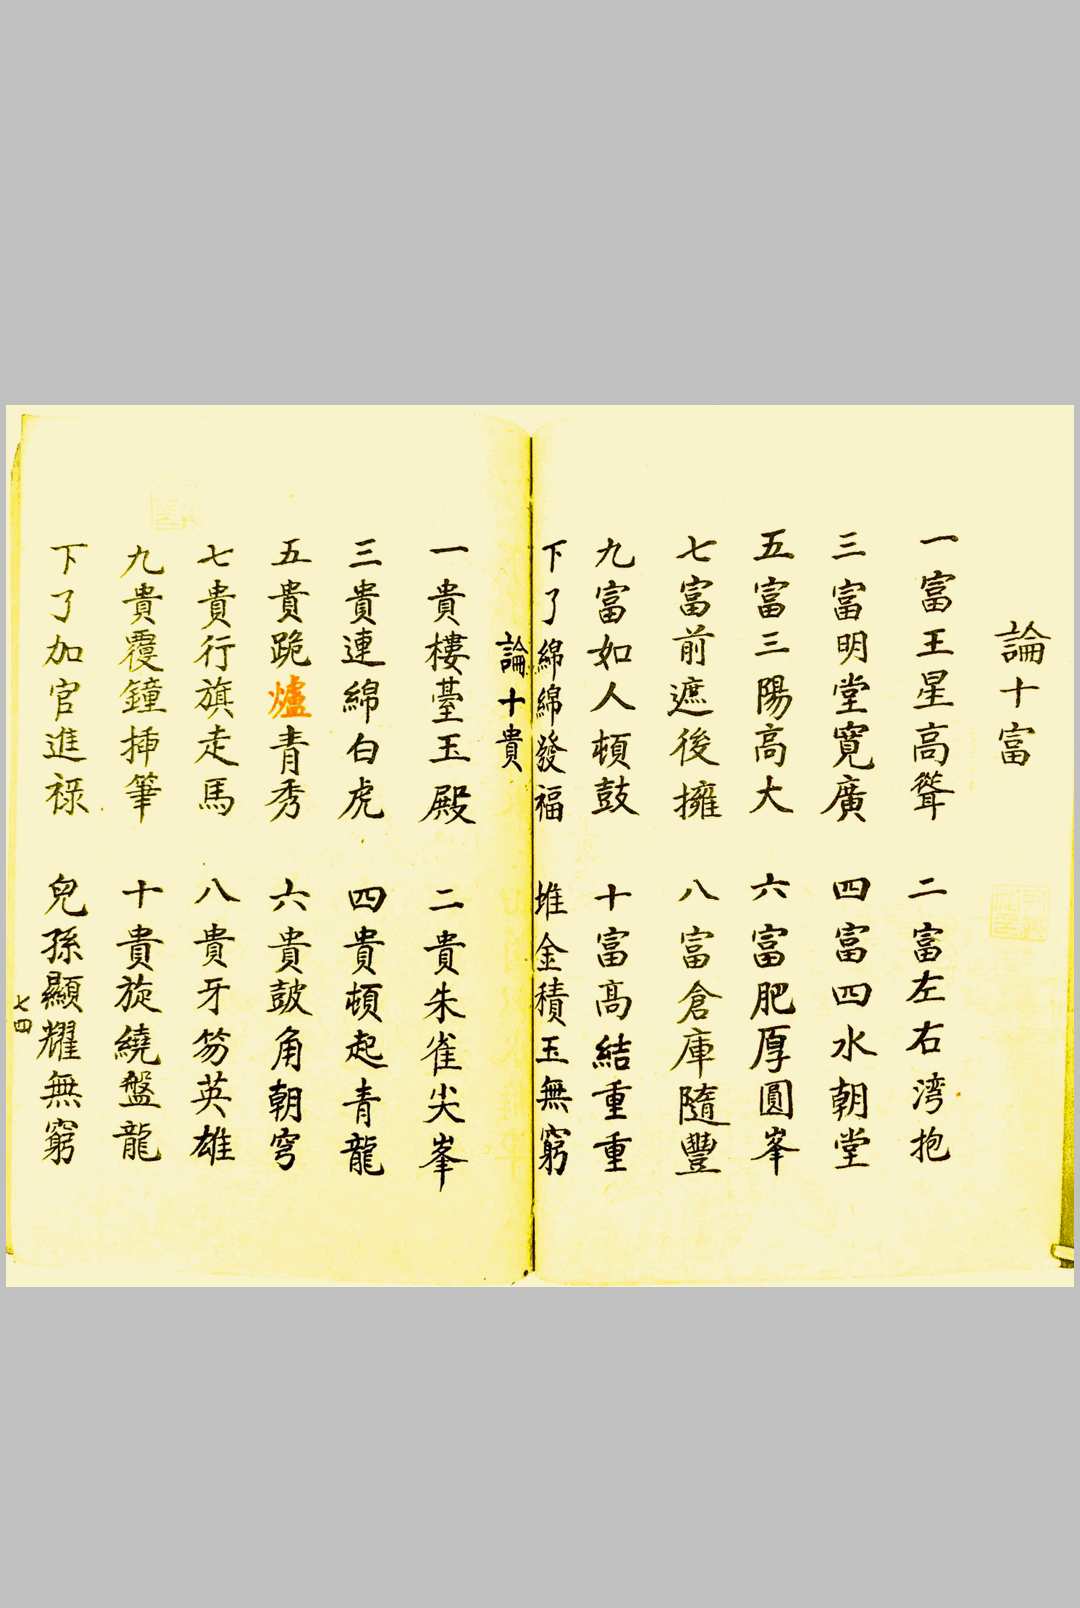 論十富
一富王星高聳 二富左右湾抱
三富明堂寛廣 四富四水朝堂
五富三陽高大 六富肥厚圓峯
七富前遮後擁 八富倉庫隨豐
九富如人頓鼓 十富高結重重
下了綿綿發福 堆金積玉無窮
論十貴
一貴樓臺玉殿 二貴朱雀尖峯
三貴連綿白虎 四貴頓起青龍
五貴跪爐青秀 六貴皷角朝穹
七貴行旗走馬 八貴牙笏英雄
九貴覆鐘挿筆 十貴旋繞盤龍
下了加官進禄 兒孫顯耀無窮
七四